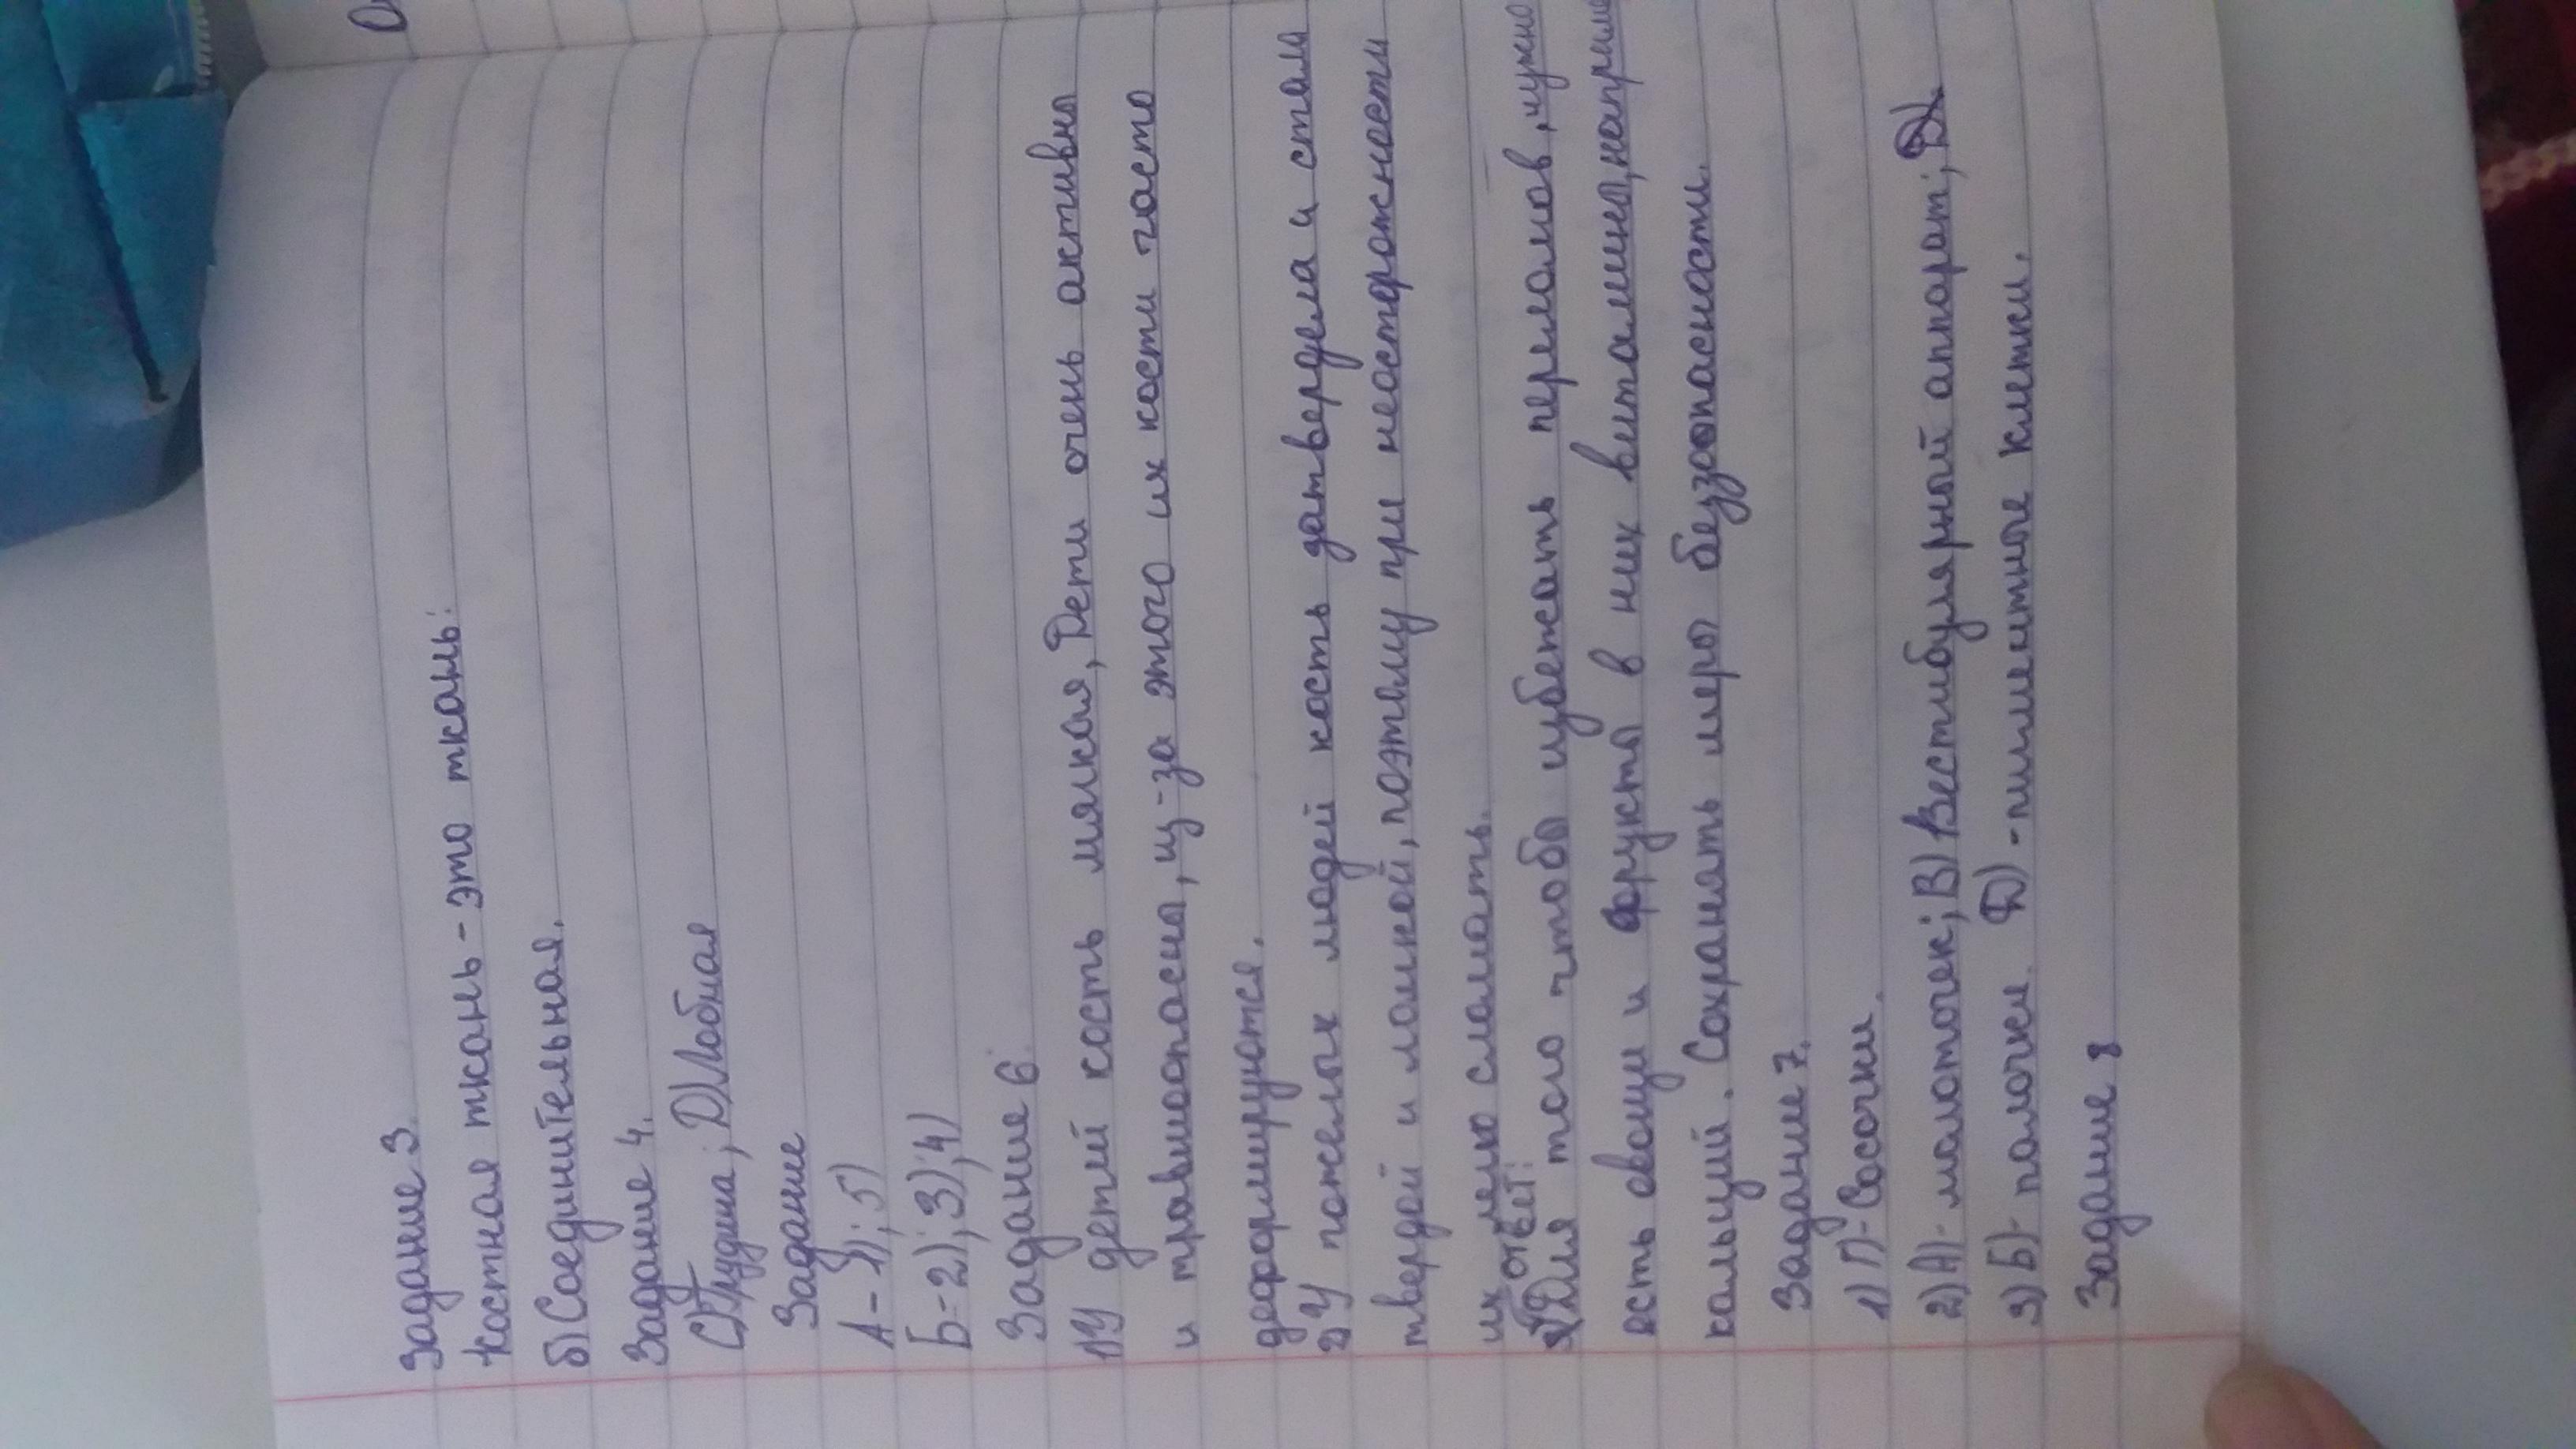 Задание 3.
Костная ткань - это ткань:
б) Соединительная.
Задание 4.
С) Грудина; D) Лобная
Задание
А - 1); 5)
Б = 2); 3); 4)
Задание 6.
1) У детей кость мягкая, Дети очень активны
и травмоопасны, из-за этого их кости часто
деформируются.
2) У пожелых людей кость затвердела и стала
твердой и ломкой, поэтому при неосторожности
их легко сломать.
ответ:
Для того чтобы избежать переломов, нужно
есть овощи и фрукты в них витамины, наприме
кальций. Сохранять меры беззопасности.
Задание 7.
1) П - Сосочки.
2) А) - молоточек; В) Вестибулярный аппарат;
3) Б) - палочки. D) - пигментные клетки.
Задание 8